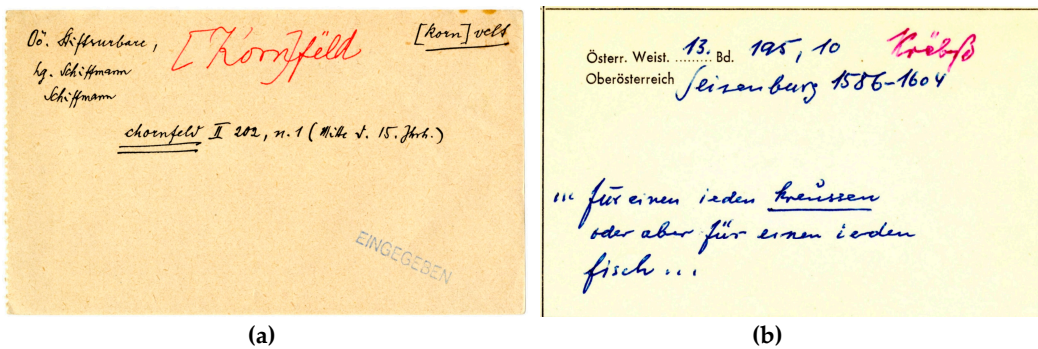 Oö. Stiftsurbare,
hg. Schiffmann
Schiffmann
[Korn]fëld
[korn]velt
chornfeld II 202, n. 1 (Mitte d. 15. Jhrh.)
EINGEGEBEN
(a)
Österr. Weist. 13. Bd. 195, 10
Krëbß
Oberösterreich Seisenburg 1586-1604
... für einen ieden kreüssen
oder aber für einen ieden
fisch ...
(b)